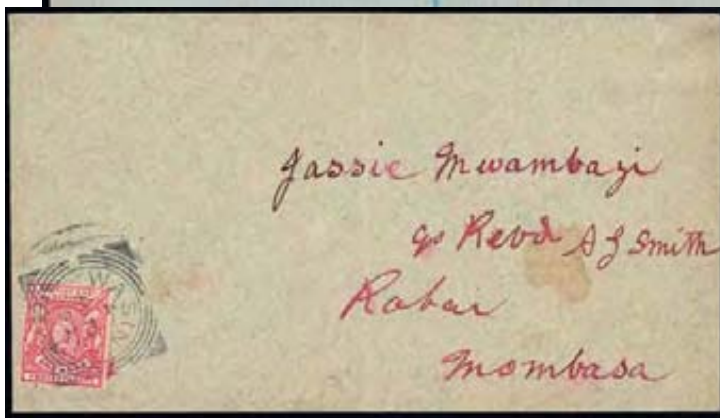 Jassie Mwambazi
c/o Revd A J Smith
Rabai
Mombasa
WASIN